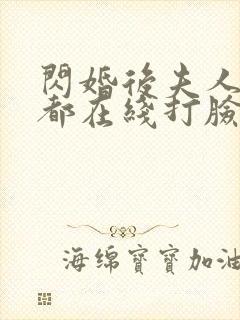 閃婚後夫人
都在綫打臉
海绵寶寶加油